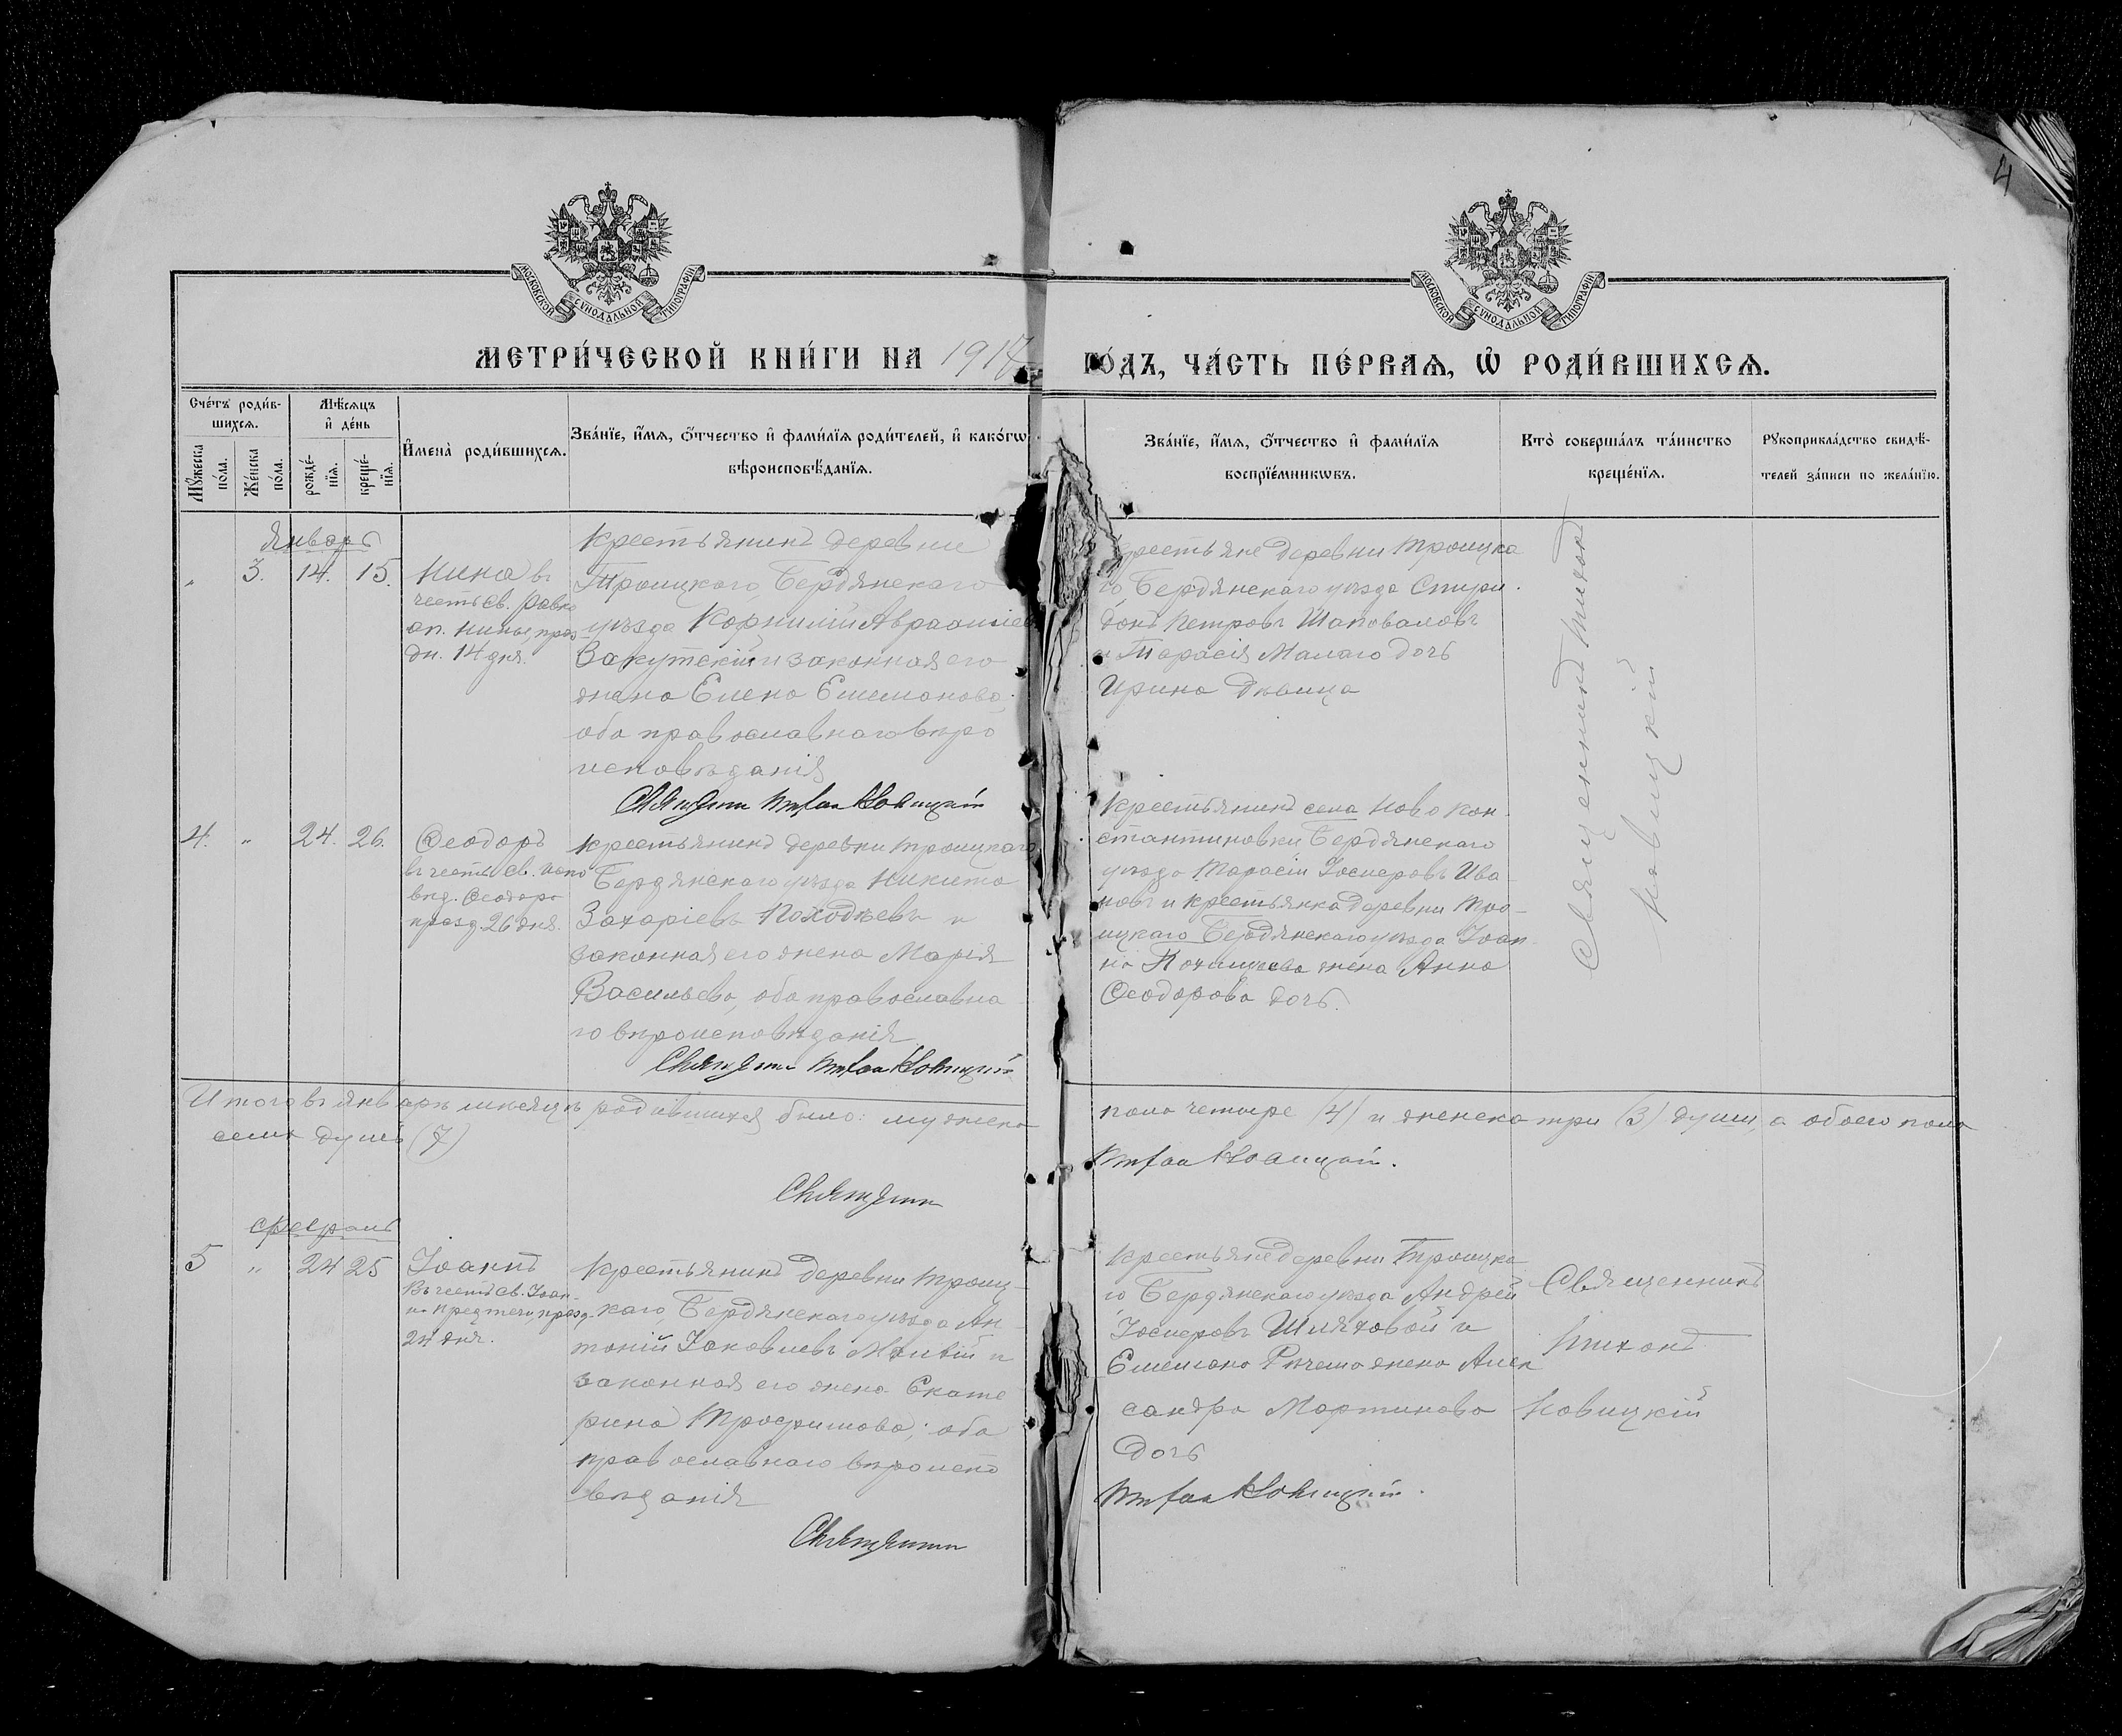 4
МОСКОВСКОЙ СѴНОДАЛЬНОЙ ТИПОГРАФІИ
МОСКОВСКОЙ СѴНОДАЛЬНОЙ ТИПОГРАФІИ
МЕТРИ́ЧЕСКОЙ КНИ́ГИ НА 1917
ГО́ДЪ, ЧА́СТЬ ПЕ́РВАѦ, Ѡ҆ РОДИ́ВШИХСѦ.
Сче́тъ роди́в-
шихсѧ.
Мѣ́сѧцъ
и҆ де́нь
Мꙋ́жеска
по́ла.
Же́нска
по́ла.
рожде́-
нїѧ.
креще́-
нїѧ.
И҆мена̀ роди́вшихсѧ.
Зва́нїе, и҆́мѧ, ѻ҆́тчество и҆ фами́лїѧ роди́телей, и҆ како́гѡ
вѣроисповѣ́данїѧ.
Зва́нїе, и҆́мѧ, ѻ҆́тчество и҆ фами́лїѧ
воспрїе́мникѡвъ.
Кто̀ соверша́лъ та́инство
креще́нїѧ.
Рꙋкоприкла́дство свидѣ́-
телей за́писи по жела́нїю.
Январь
" 3. 14. 15.
Нина въ
честь св. Равно
ап. Нины, праз
дн. 14 дня.
Крестьянинъ деревни
Троицкаго, Бердянскаго
уѣзда Корнилій Аврааміевъ
Закутскій и законная его
жена Елена Емельянова,
оба православнаго вѣро
исповѣданія
Священник Тихон Новицкій
Крестьяне деревни Троицка
го, Бердянскаго уѣзда Спири
донъ Петровъ Шаповаловъ
и Тарасія Малаго дочь
Ирина дѣвица
Священникъ Тихонъ
Новицкій
4. " 24. 26.
Ѳеодоръ
въ честь св. испо
вѣд. Ѳеодора
празд. 26 дня.
Крестьянинъ деревни Троицкаго
Бердянскаго уѣзда Никита
Захаріевъ Походѣевъ и
законная его жена Марія
Васильева, оба православна
го вѣроисповѣданія
Священник Тихон Новицкій
Крестьянинъ села Ново Кон
стантиновки Бердянскаго
уѣзда Тарасій Іосифовъ Ива
новъ и крестьянка деревни Тро-
ицкаго Бердянскаго уѣзда Іоан
на жена Анна
Ѳеодорова дочь.
Итого въ январѣ мѣсяцѣ родившихся было: мужска
пола четыре (4) и женска три (3) души, а обоего пола
семь душъ (7)
Священник
Тихон Новицкій.
Февраль
5 " 24 25
Іоаннъ
Въ честь св. Іоан-
на Предтечи, празд.
24 дня.
Крестьянинъ деревни Троиц-
каго, Бердянскаго уѣзда Ан
тоній Іаковлевъ Малый и
законная его жена Екате
рина Трофимова; оба
православнаго вѣроиспо
вѣданія
Священник
Крестьяне деревни Троицка
го Бердянскаго уѣзда Андрей
Іосифовъ Шляховой и
Емельяна жена Алек
сандра Мартинова
дочь
Тихон Новицкій.
Священникъ
Тихонъ
Новицкій